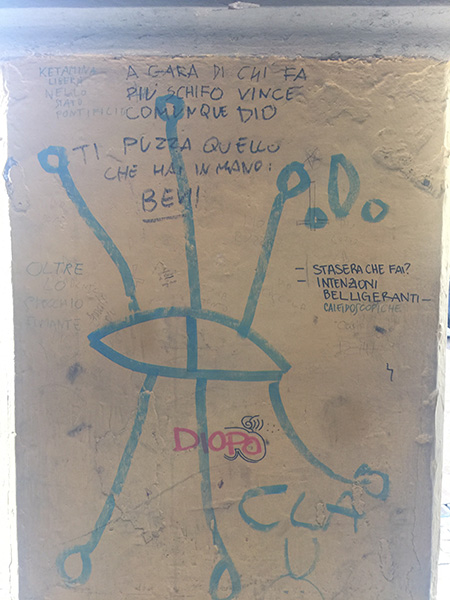 KETAMINA
LIBERA
NELLO
STATO
PONTIFICIO
A GARA DI CHI FA
PIÙ SCHIFO VINCE
COMUNQUE DIO
TI PUZZA QUELLO
CHE HAI IN MANO:
BEVI
.Do
- STASERA CHE FAI?
- INTENZIONI
BELLIGERANTI -
CALEIDOSCOPICHE
OLTRE
LO
DIOPO